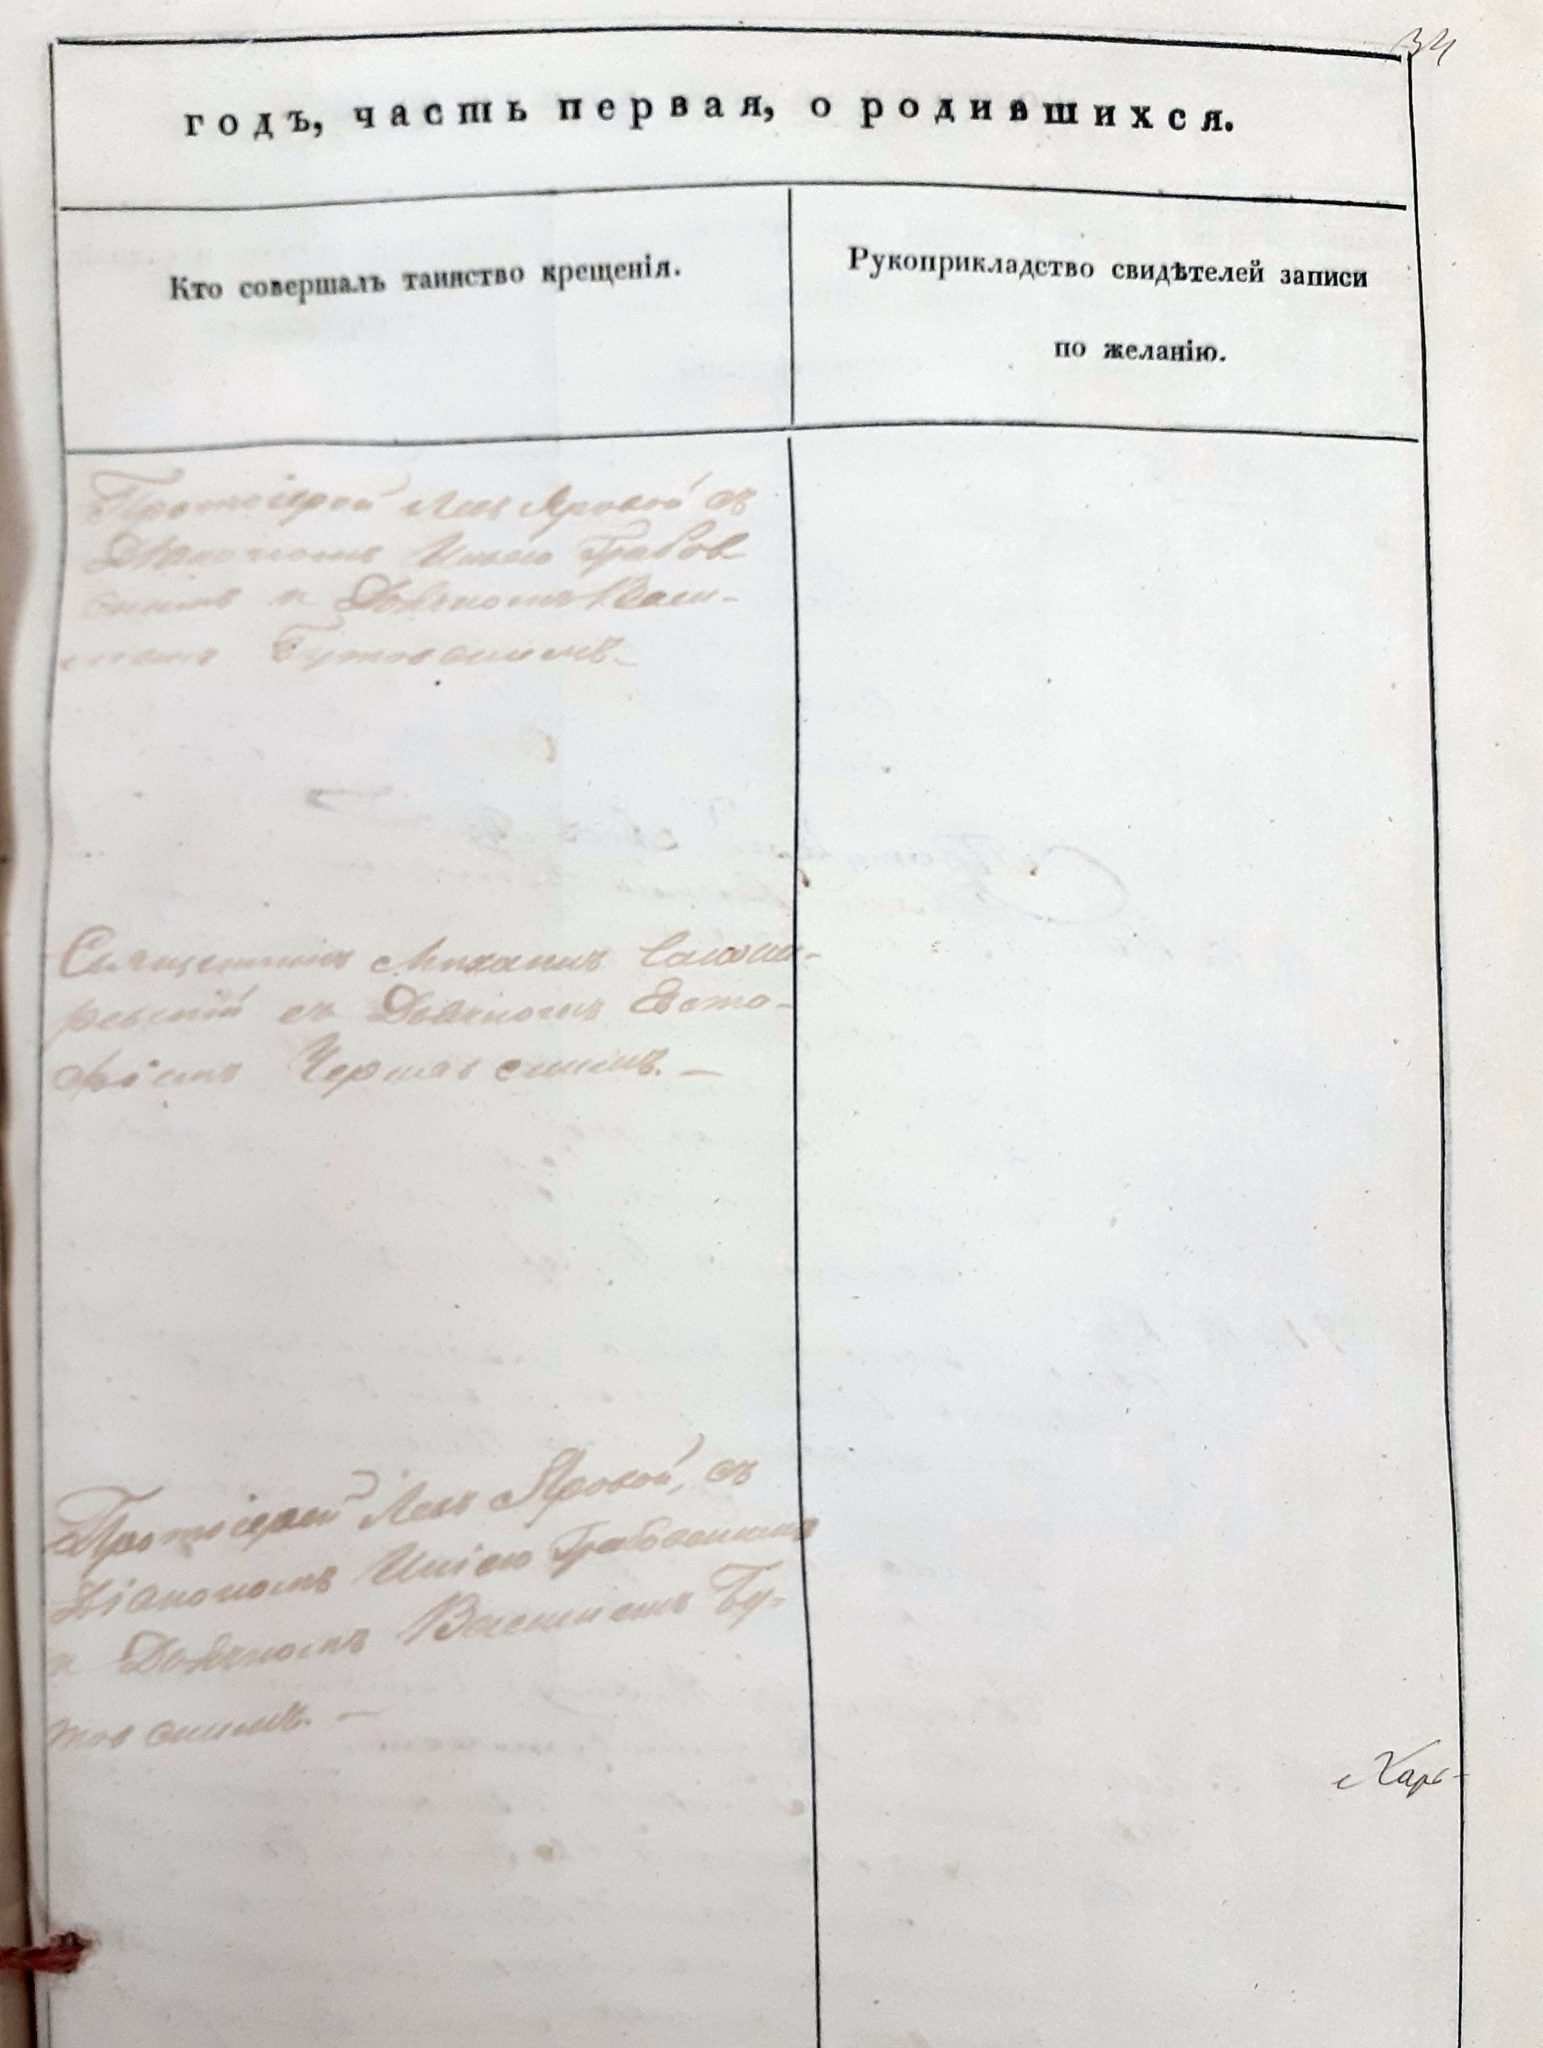 34
годъ, часть первая, о родившихся.
Кто совершалъ таинство крещенія.
Рукоприкладство свидѣтелей записи
по желанію.
Протоіерей Левъ Яровой съ
Діакономъ Ильею Грабов-
скимъ и Дьячкомъ Васи-
ліемъ Бутовскимъ. -
Священникъ Михаилъ
съ Дьячкомъ Евста-
фіемъ Чернявскимъ. —
Протоіерей Левъ Яровой, съ
Діакономъ Иліею Грабовскимъ
и Дьячкомъ Василіемъ Бу-
товскимъ. —
Харь-